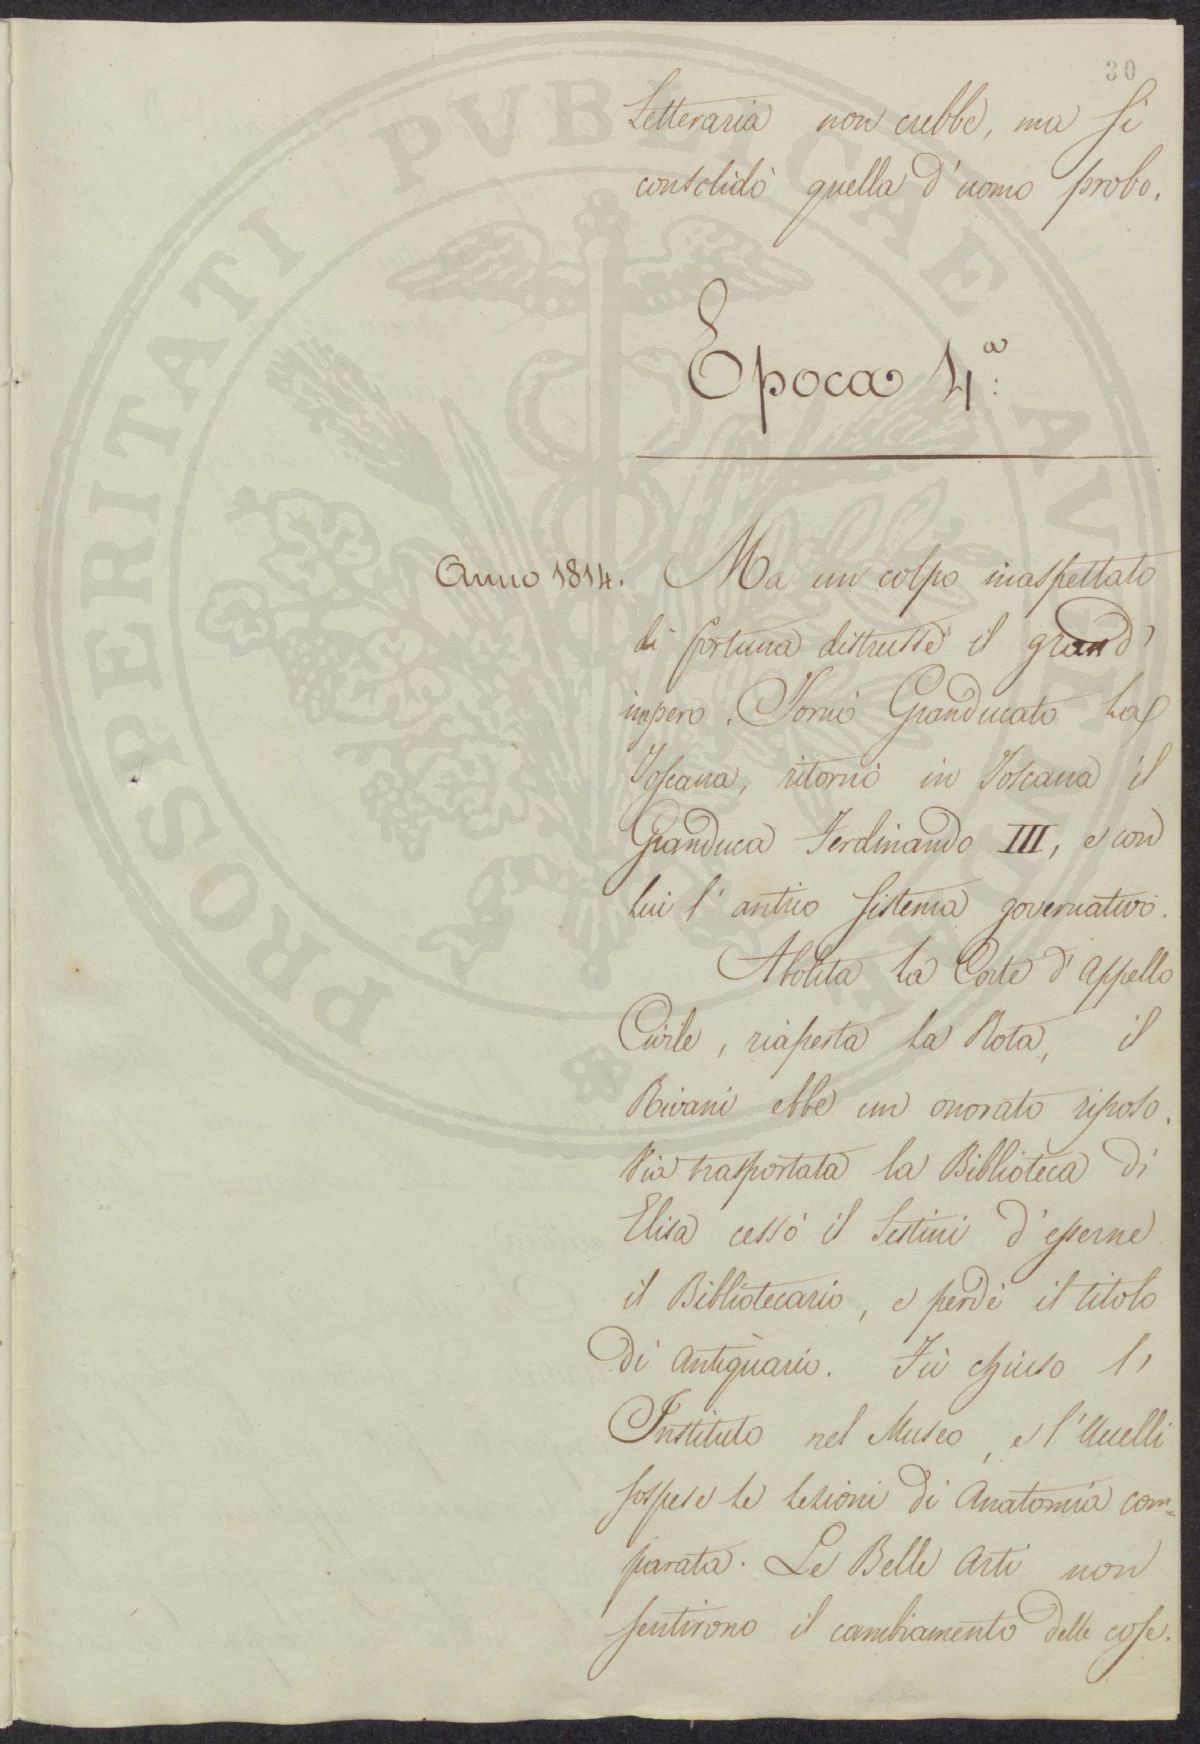 30
Letteraria non crebbe, ma si
consolidò quella d'uomo probo.
Epoca 4.ª
Anno 1814. Ma un colpo inaspettato
di fortuna distrusse il grand'
impero. Tornò Granducato la
Toscana, ritornò in Toscana il
Granduca Ferdinando III, e con
lui l'antico sistema governativo.
Abolita la Corte d'Appello
Civile, riaperta la Rota, il
Bivani ebbe un onorato riposo.
Via trasportata la Biblioteca di
Elisa cessò il Sestini d'esserne
il Bibliotecario, e perdè il titolo
di Antiquario. Fù chiuso l'
Instituto nel Museo, e l'Uccelli
sospese le lezioni di Anatomia com=
parata. Le Belle Arti non
sentirono il cambiamento delle cose.
PROSPERITATI PVBLICAE AVGENDAE